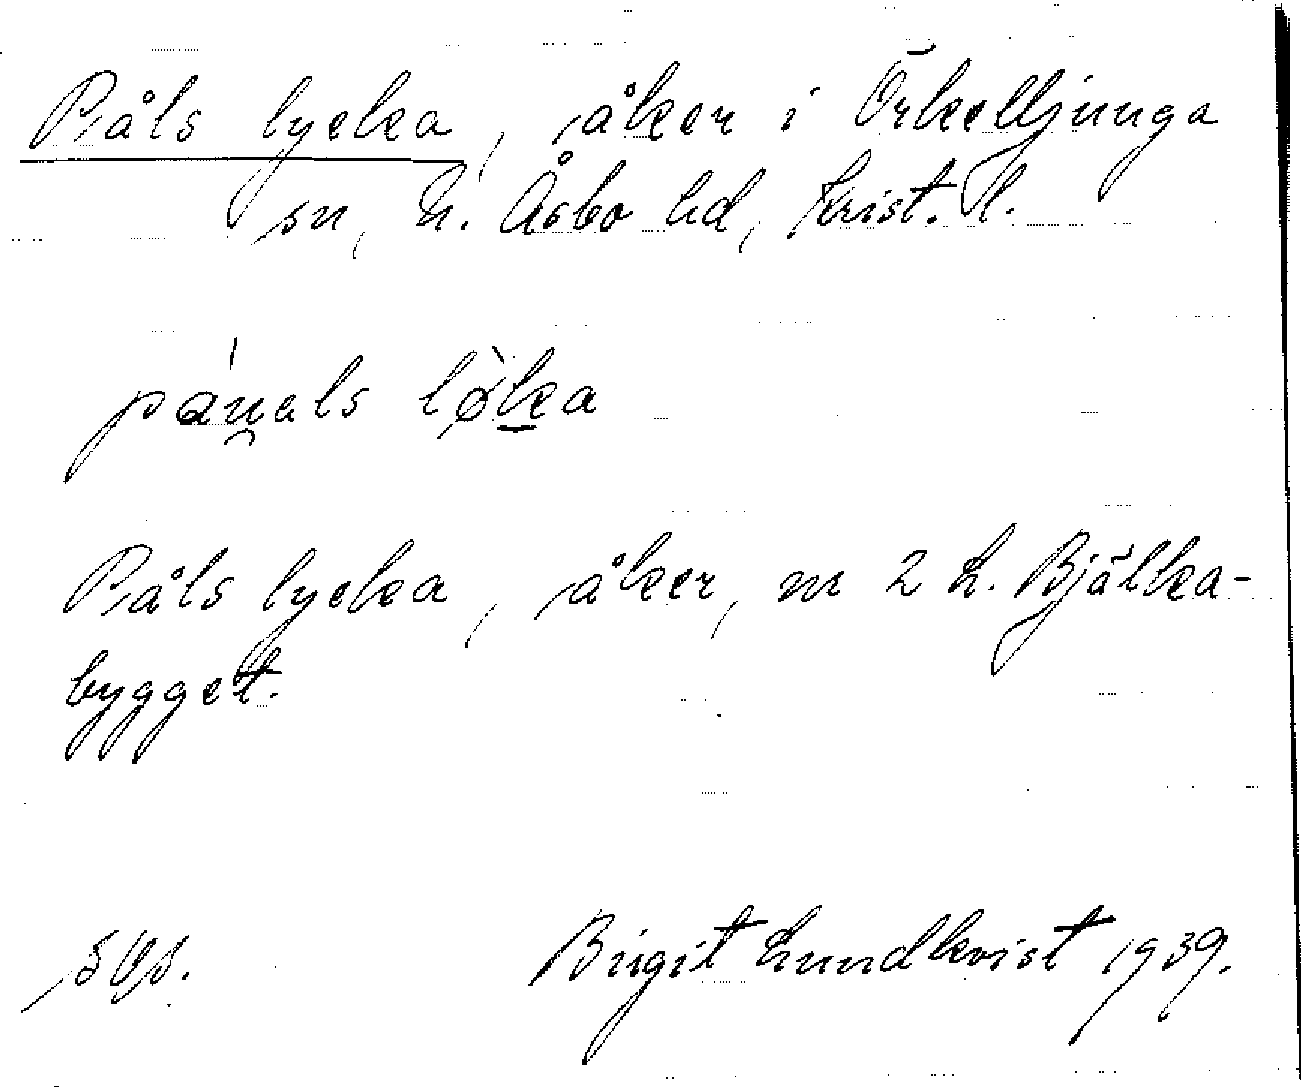 Påls lycka, åker i Örkelljunga
sn, N. Åsbo hd, Krist. l.
Påls lycka, åker, nr 2 L. Bjälka-
bygget.
Birgit Lundkvist 1939.